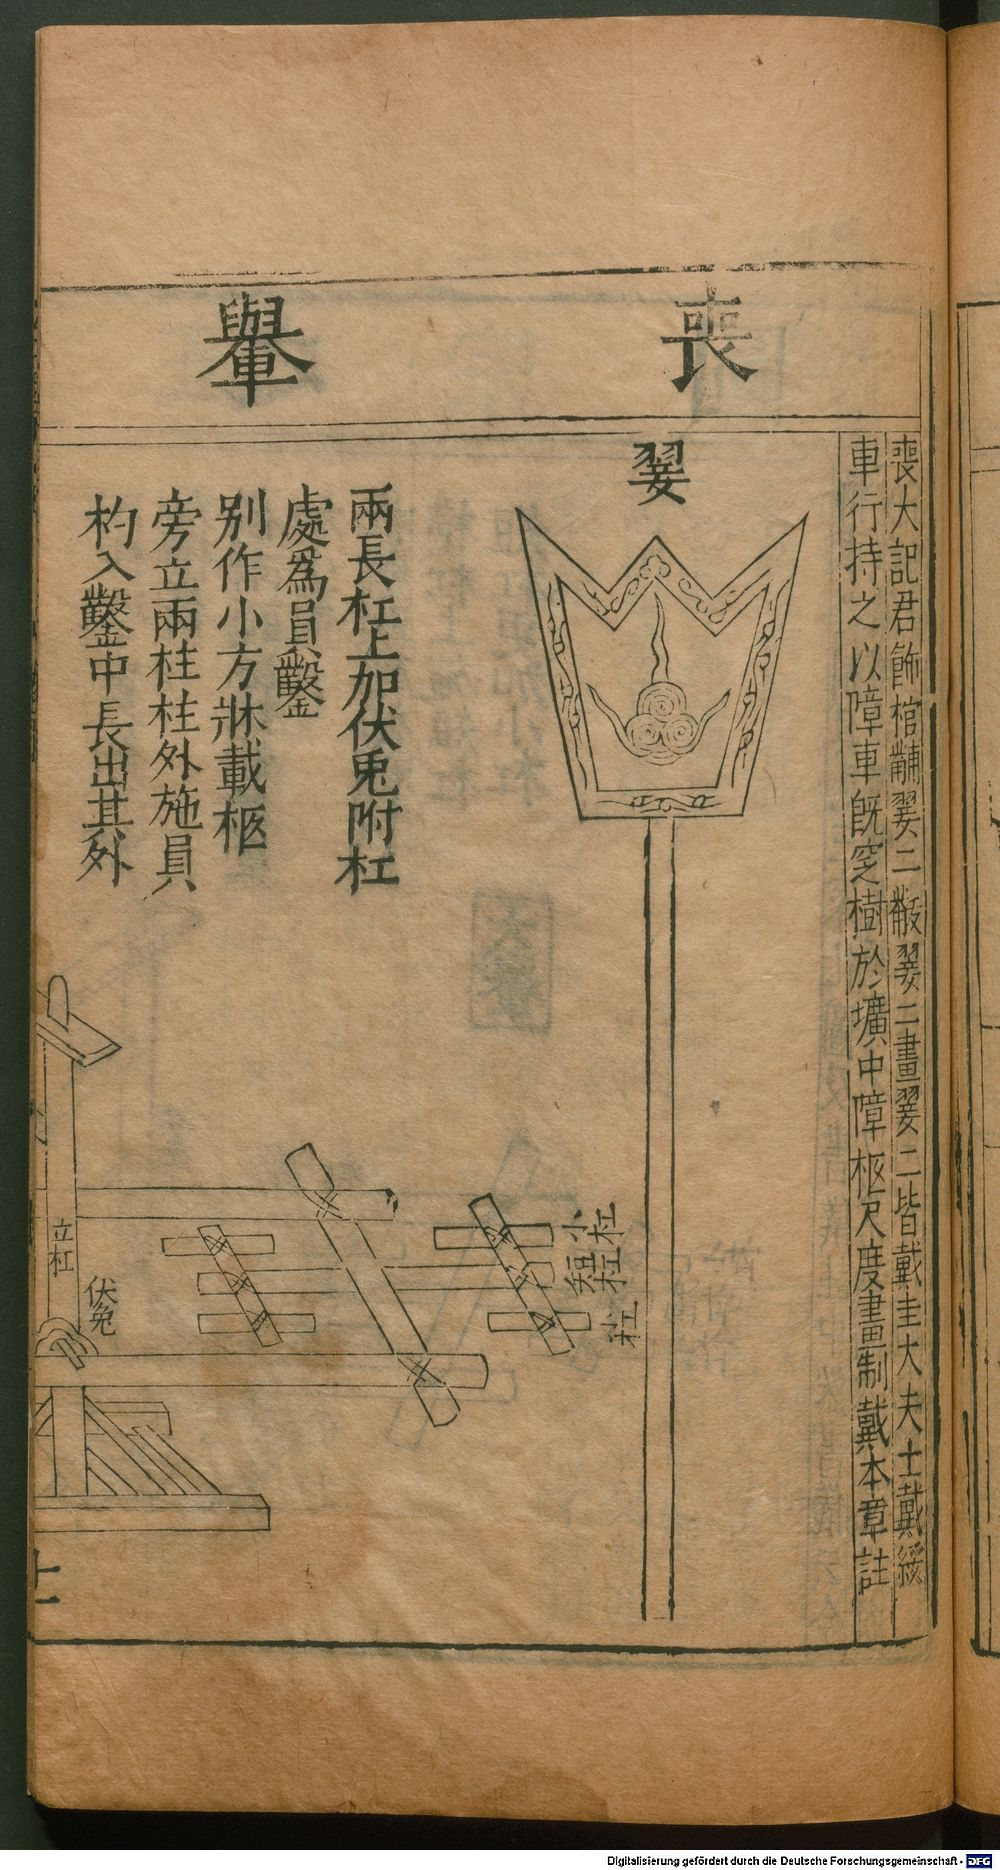 喪轝
喪大記君飾棺黼翣二黻翣二畫翣二皆戴圭大夫士戴綏
車行持之以障車既窆樹於壙中障柩尺度畫制戴本章註
翣
兩長杠上加伏兎附杠
處為員鑿
別作小方牀載柩
旁立兩柱柱外施員
杓入鑿中長出其外
小杠
短杠
小杠
立杠
伏兔
十一
Digitalisierung gefördert durch die Deutsche Forschungsgemeinschaft - DFG